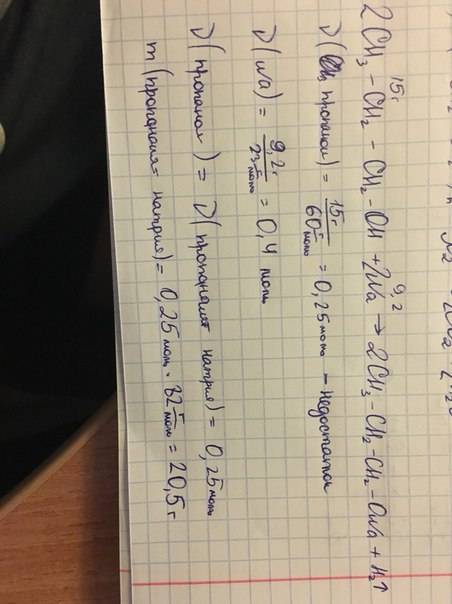 15 г 9,2
2CH₃ - CH₂ - CH₂ - OH + 2Na → 2CH₃ - CH₂ - CH₂ - ONa + H₂↑
ν( пропанол) = 15 г / 60 г/моль = 0,25 моль - недостаток
ν(Na) = 9,2 г / 23 г/моль = 0,4 моль
ν(пропанол) = ν(пропанолят натрия) = 0,25 моль
m(пропанолят натрия) = 0,25 моль · 82 г/моль = 20,5 г